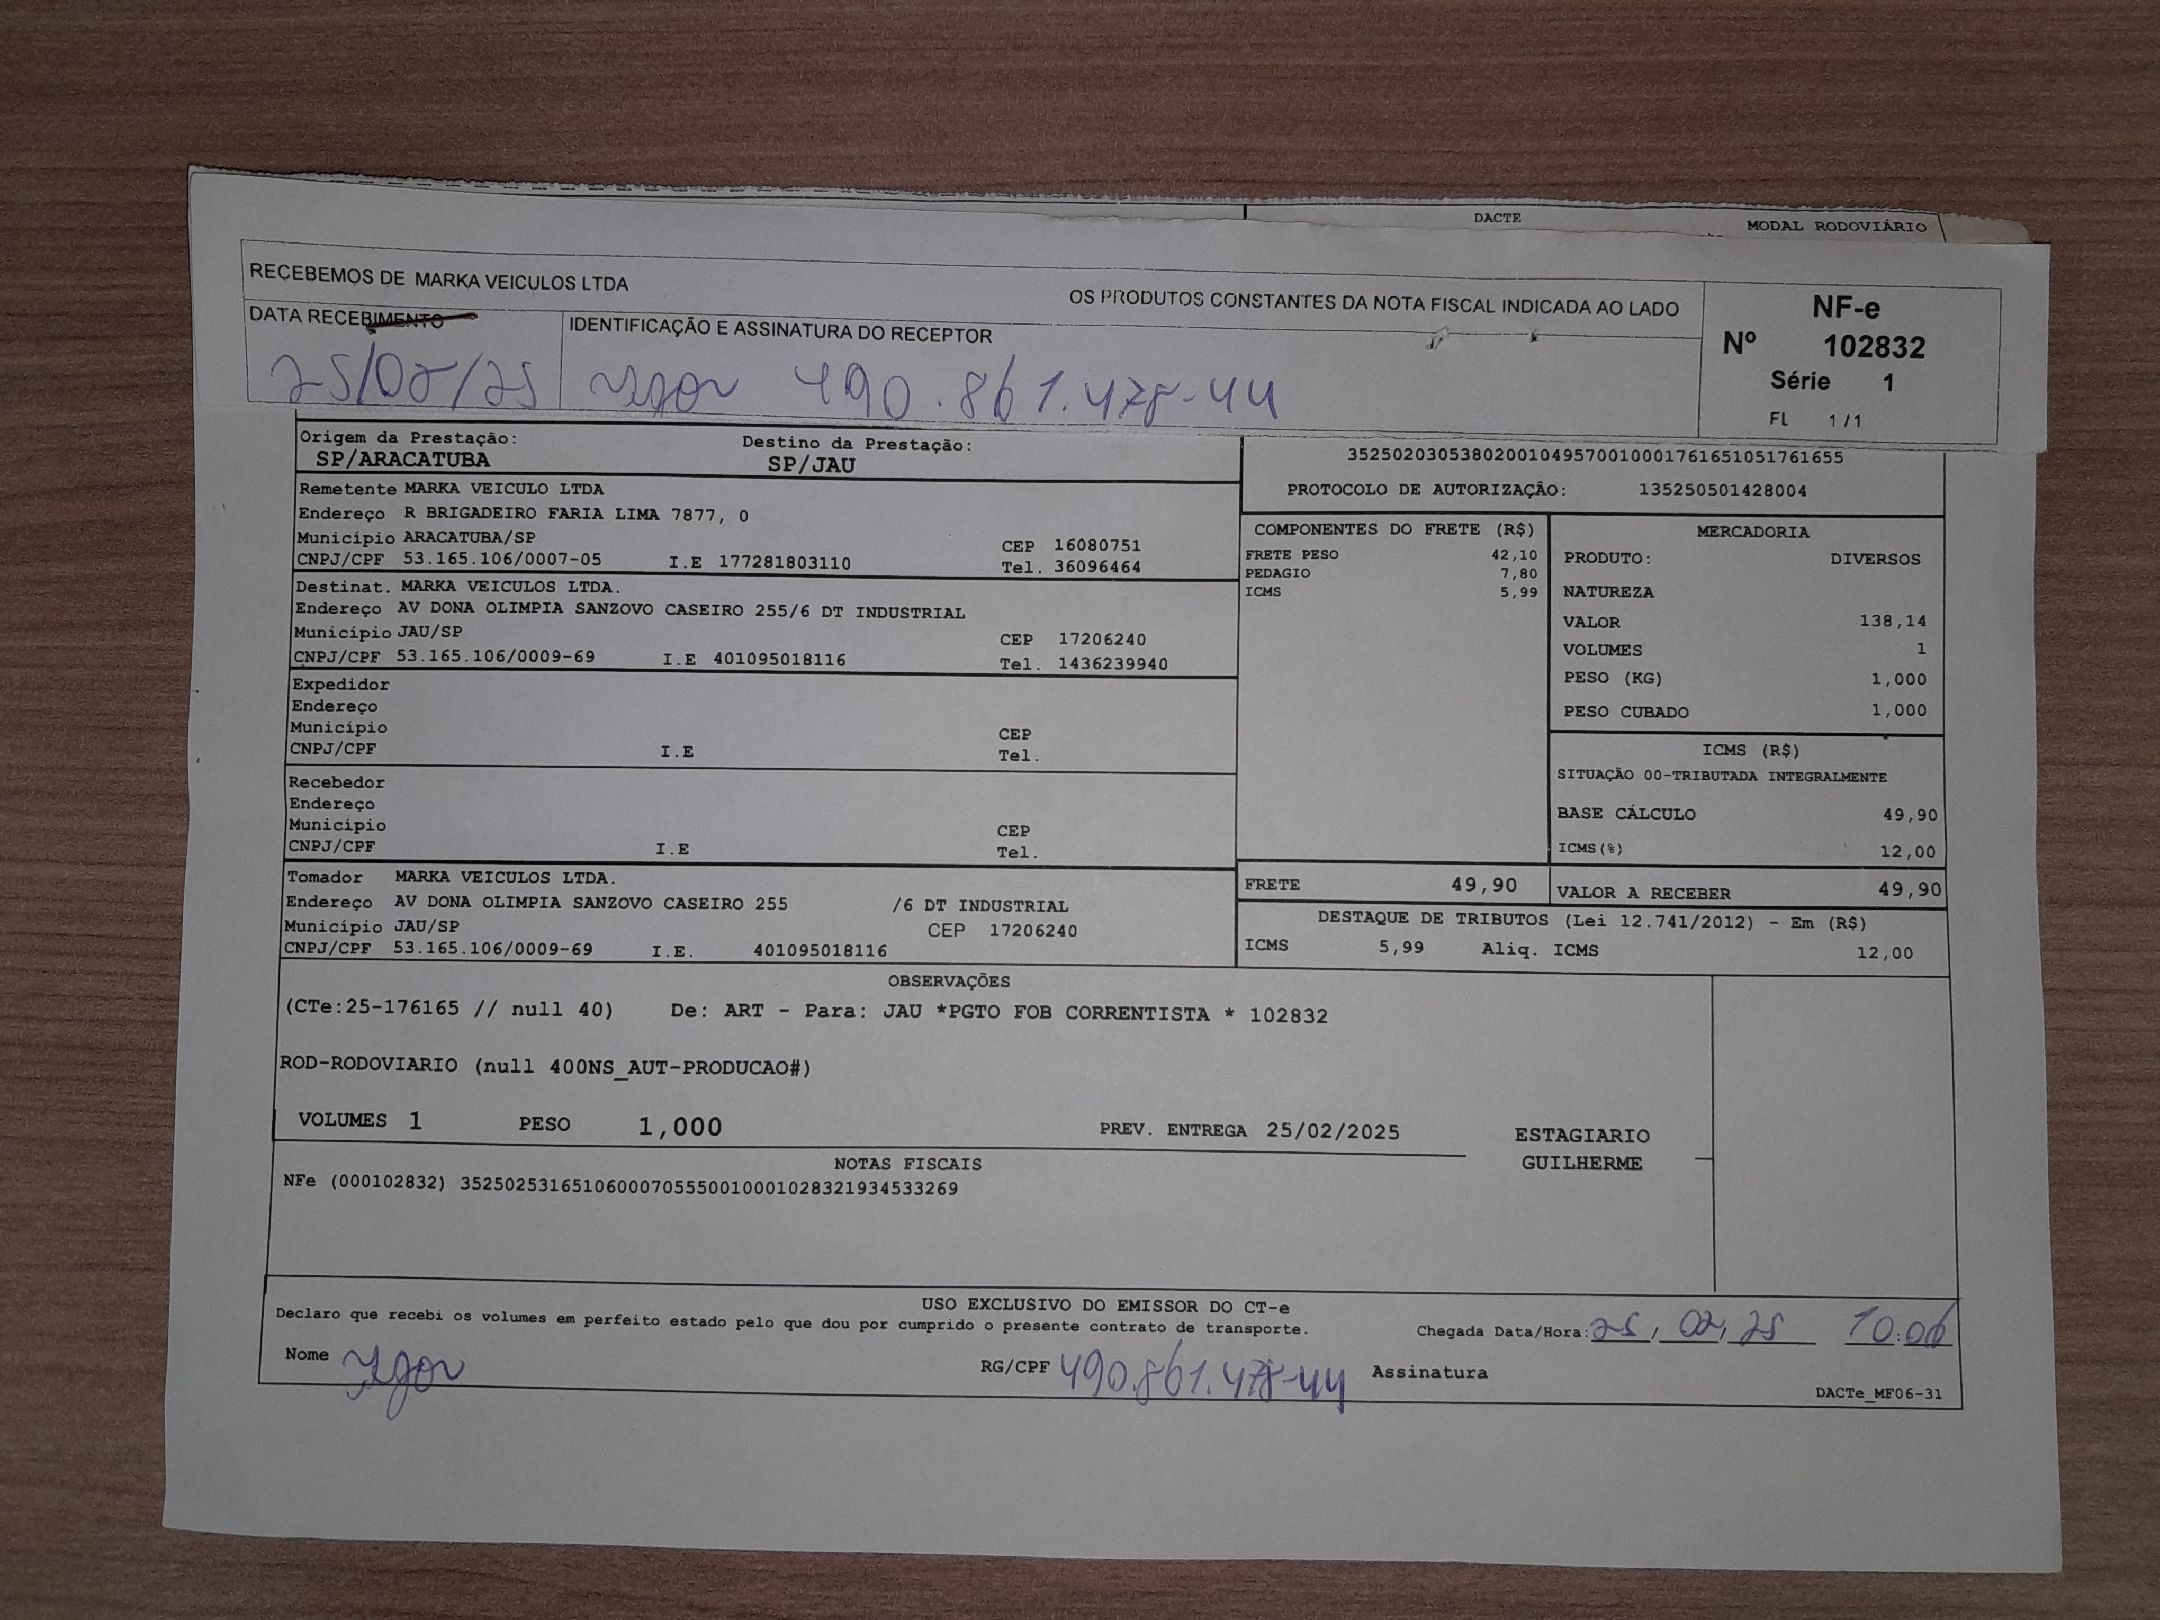 DACTE MODAL RODOVIÁRIO
RECEBEMOS DE MARKA VEICULOS LTDA OS PRODUTOS CONSTANTES DA NOTA FISCAL INDICADA AO LADO
NF-e
Nº 102832
Série 1
FL 1/1
DATA RECEBIMENTO IDENTIFICAÇÃO E ASSINATURA DO RECEPTOR
25/02/25 Ygor 490.861.478-44
Origem da Prestação: Destino da Prestação:
SP/ARACATUBA SP/JAU
35250203053802001049570010001761651051761655
PROTOCOLO DE AUTORIZAÇÃO: 135250501428004
Remetente MARKA VEICULO LTDA
Endereço R BRIGADEIRO FARIA LIMA 7877, 0
Município ARACATUBA/SP CEP 16080751
CNPJ/CPF 53.165.106/0007-05 I.E 177281803110 Tel. 36096464
Destinat. MARKA VEICULOS LTDA.
Endereço AV DONA OLIMPIA SANZOVO CASEIRO 255/6 DT INDUSTRIAL
Município JAU/SP CEP 17206240
CNPJ/CPF 53.165.106/0009-69 I.E 401095018116 Tel. 1436239940
Expedidor
Endereço
Município CEP
CNPJ/CPF I.E Tel.
Recebedor
Endereço
Município CEP
CNPJ/CPF I.E Tel.
Tomador MARKA VEICULOS LTDA.
Endereço AV DONA OLIMPIA SANZOVO CASEIRO 255 /6 DT INDUSTRIAL
Município JAU/SP CEP 17206240
CNPJ/CPF 53.165.106/0009-69 I.E. 401095018116
COMPONENTES DO FRETE (R$)
FRETE PESO 42,10
PEDAGIO 7,80
ICMS 5,99
MERCADORIA
PRODUTO: DIVERSOS
NATUREZA
VALOR 138,14
VOLUMES 1
PESO (KG) 1,000
PESO CUBADO 1,000
ICMS (R$)
SITUAÇÃO 00-TRIBUTADA INTEGRALMENTE
BASE CÁLCULO 49,90
ICMS(%) 12,00
FRETE 49,90 VALOR A RECEBER 49,90
DESTAQUE DE TRIBUTOS (Lei 12.741/2012) - Em (R$)
ICMS 5,99 Aliq. ICMS 12,00
OBSERVAÇÕES
(CTe:25-176165 // null 40) De: ART - Para: JAU *PGTO FOB CORRENTISTA * 102832
ROD-RODOVIARIO (null 400NS_AUT-PRODUCAO#)
VOLUMES 1 PESO 1,000 PREV. ENTREGA 25/02/2025 ESTAGIARIO
GUILHERME
NOTAS FISCAIS
NFe (000102832) 35250253165106000705550010001028321934533269
USO EXCLUSIVO DO EMISSOR DO CT-e
Declaro que recebi os volumes em perfeito estado pelo que dou por cumprido o presente contrato de transporte. Chegada Data/Hora: 25/02/25 10:06
Nome Ygor RG/CPF 490.861.478-44 Assinatura
DACTe_MF06-31